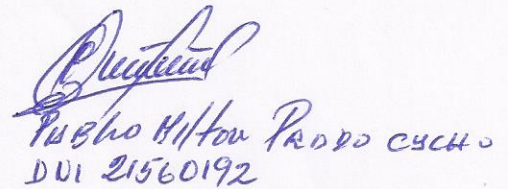 Pablo Milton Prado cucho
DNI 21560192